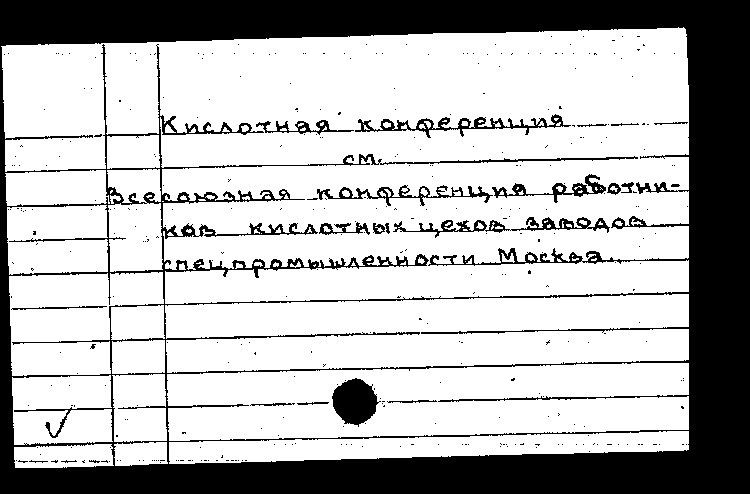 Кислотная конференция
см.
Всесоюзная конференция работни-
ков кислотных цехов заводов
спецпромышленности. Москва.